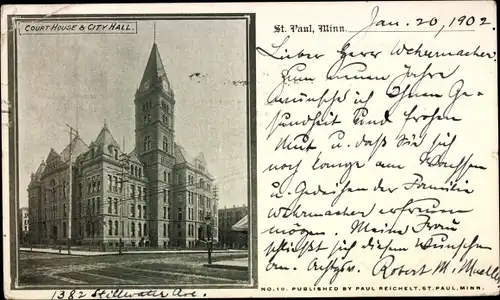 COURT HOUSE & CITY HALL.
St. Paul, Minn.
Jan. 20, 1902
Lieber Herr Wehrmacher.
Zum neuen Jahre
wünsche ich Ihnen Ge-
sundheit und frohen
Mut, u. daß Sie sich
noch lange am Wachsen
u. Gedeihen der Familie
Wehrmacher erfreuen
mögen. Meine Frau
schließt sich diesen Wünschen
an.
Robert M. Mueller
NO. 10. PUBLISHED BY PAUL REICHELT, ST. PAUL, MINN.
1382 Stillwater Ave.